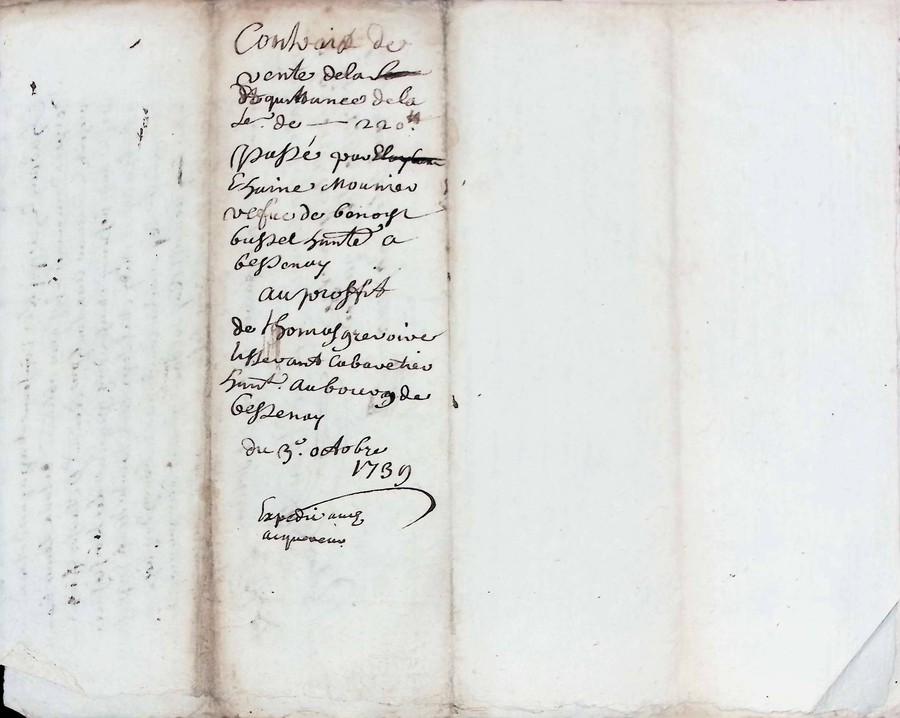 Contrait de
vente dela
& quittance dela
Se. de — 220ᵗᵗ.
passé par
Ehaine Mounier
vefue de benoist
bussel hante a
bessenay
au proffit
de thomas grevoire
cabaretier
hant. au bourg de
bessenay
du 3ᵉ. octobre
1739
Expedié aud
acquereur